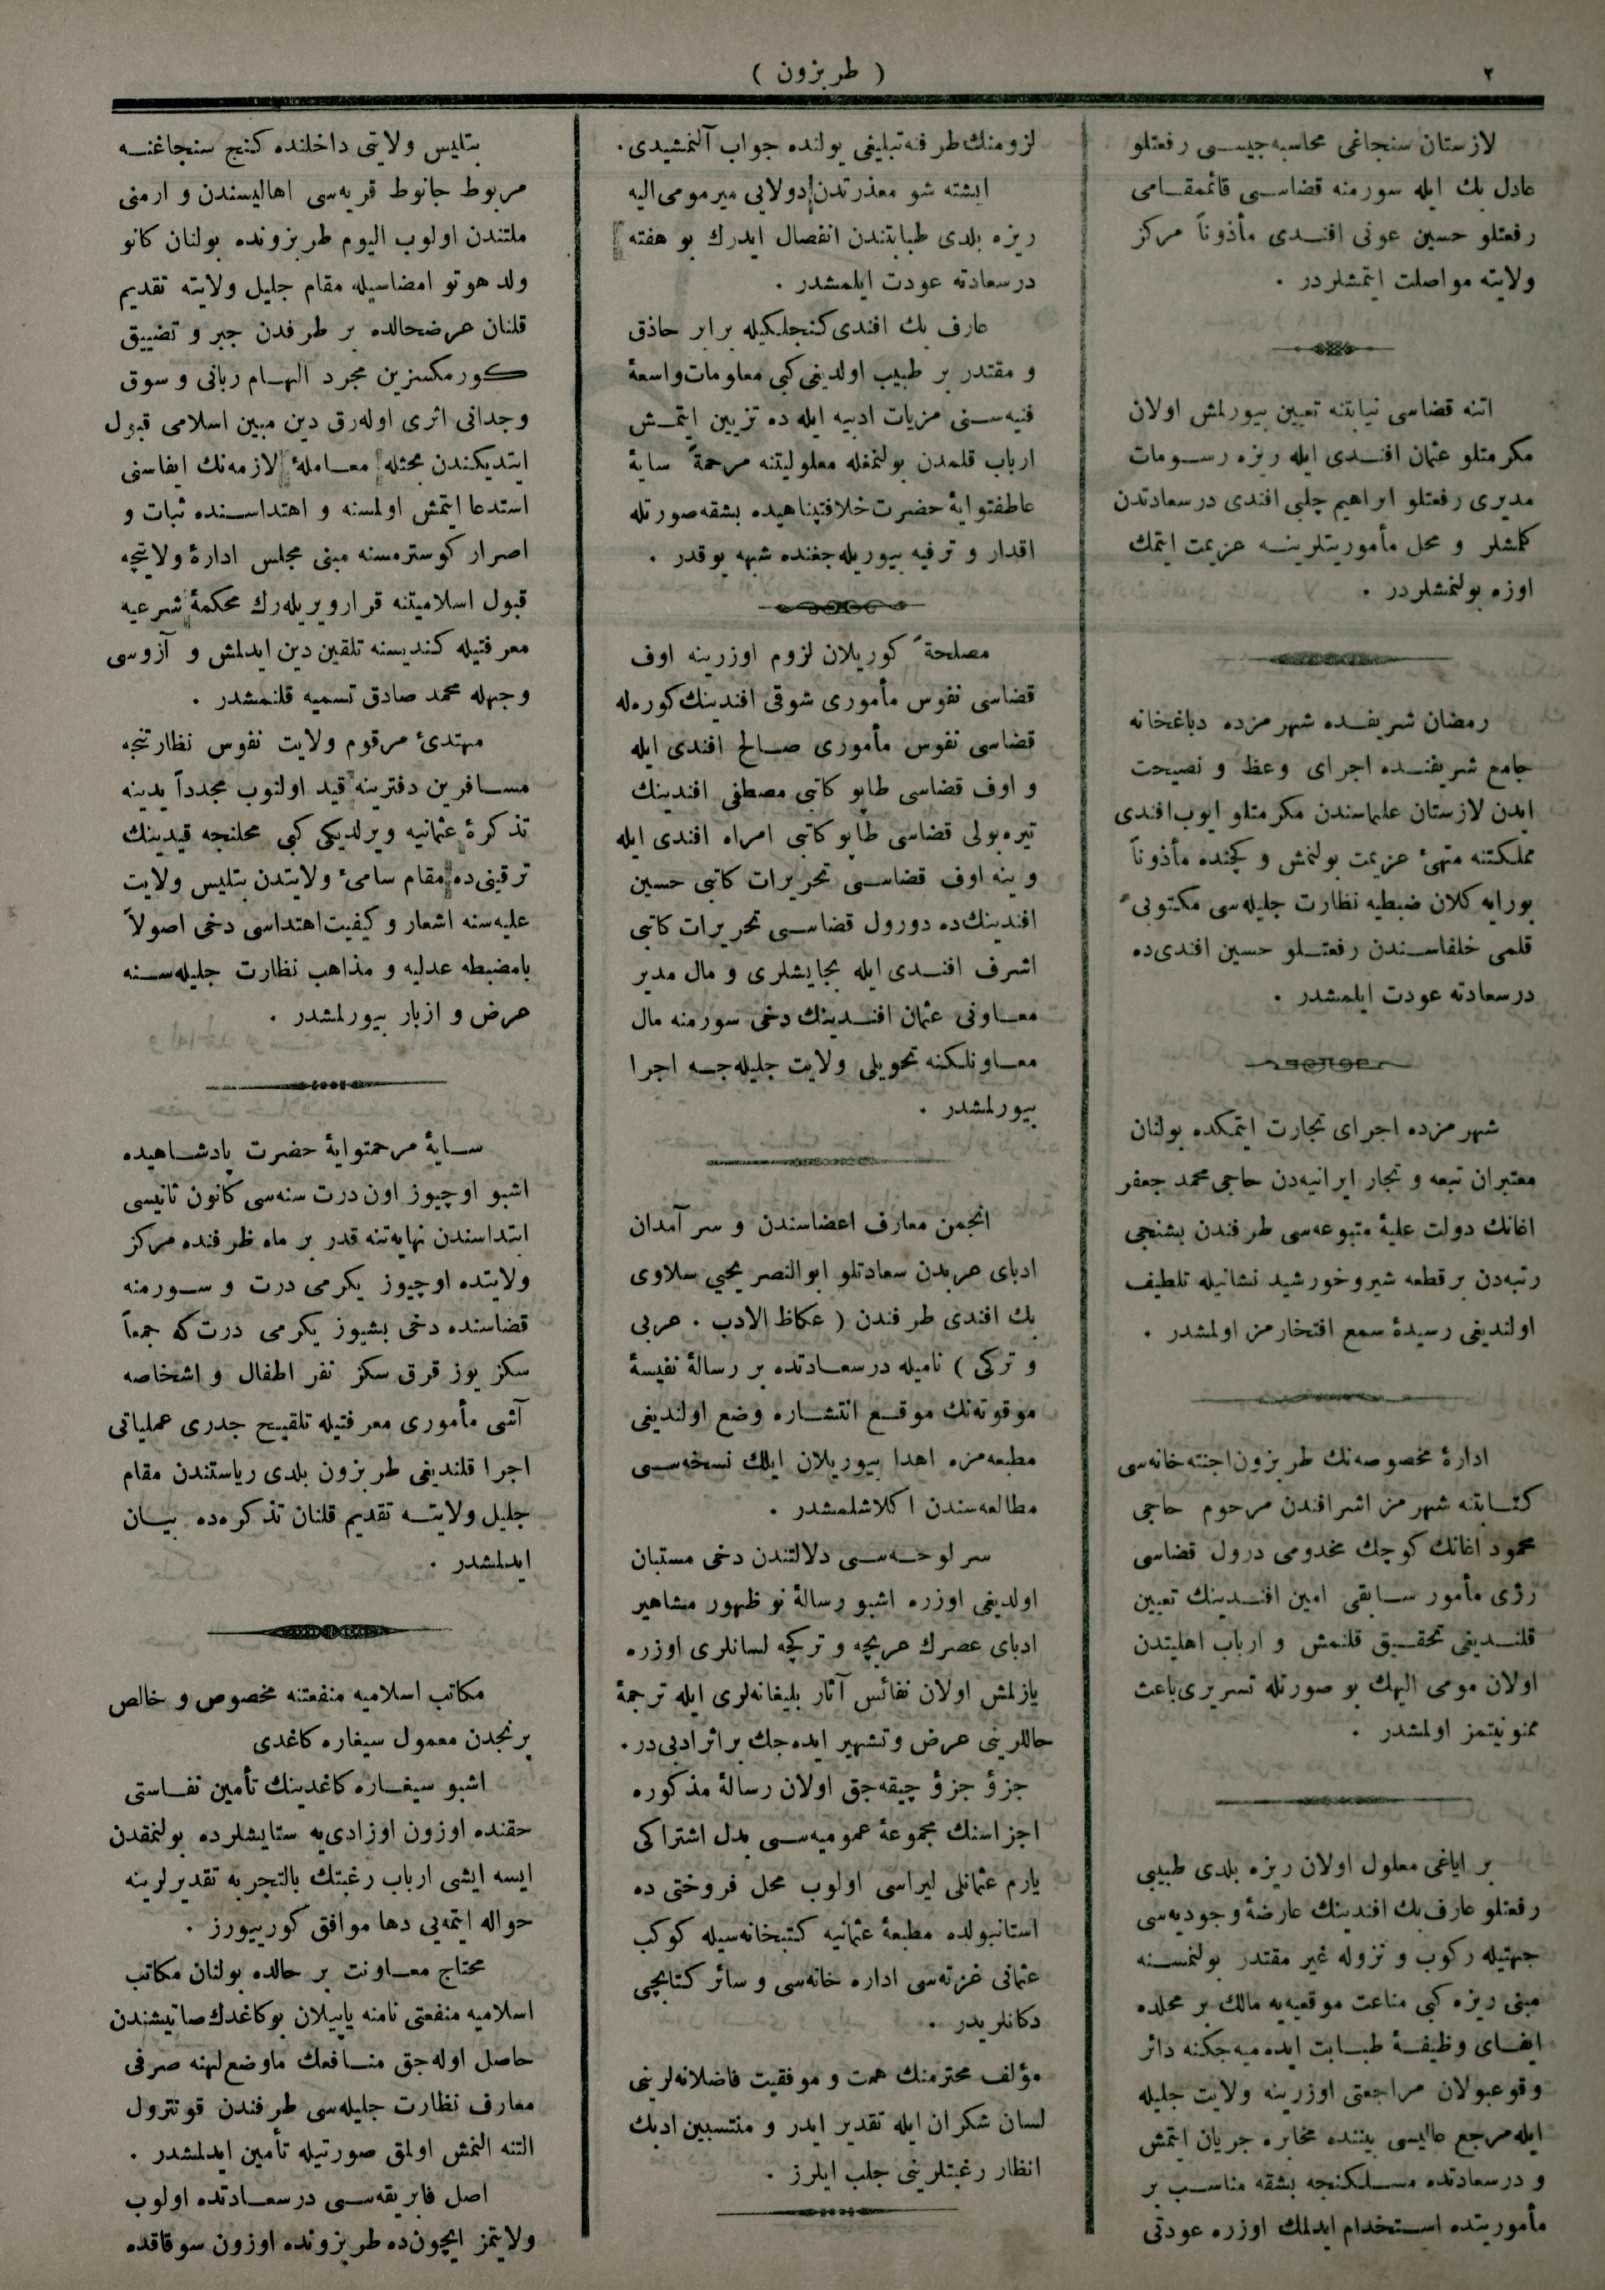 ٢
( طربزون )
لازستان سنجاغى محاسبه‌جيسى رفعتلو
عادل بك ايله سورمنه قضاسى قائمقامى
رفعتلو حسين عونى افندى مأذوناً مركز
ولايته مواصلت ايتمشلردر .
اتنه قضاسى نيابتنه تعيين بيورلمش اولان
مكرمتلو عثمان افندى ايله ريزه رسومات
مديرى رفعتلو ابراهيم چلبى افندى درسعادتدن
كلمشلر و محل مأموريتلرينه عزيمت ايتمك
اوزه بولنمشلردر .
رمضان شريفده شهرمزده دباغخانه
جامع شريفنده اجراى وعظ و نصيحت
ايدن لازستان علماسندن مكرمتلو ايوب افندى
مملكتنه متهئ عزيمت بولنمش و كچنده مأذوناً
بورايه كلان ضبطيه نظارت جليله‌سى مكتوبى
قلمى خلفاسندن رفعتلو حسين افندى‌ده
درسعادته عودت ايلمشدر .
شهرمزده اجراى تجارت ايتمكده بولنان
معتبران تبعه و تجار ايرانيه‌دن حاجى محمد جعفر
اغانك دولت عليۀ متبوعه‌سى طرفندن بشنجى
رتبه‌دن برقطعه شيروخورشيد نشانيله تلطيف
اولنديغى رسيدۀ سمع افتخارمز اولمشدر .
ادارۀ مخصوصه‌نك طربزون اجنته‌خانه‌سى
كتابتنه شهرمز اشرافندن مرحوم حاجى
محمود اغانك كوچك مخدومى درول قضاسى
رژى مأمور سابقى امين افندينك تعيين
قلنديغى تحقيق قلنمش و ارباب اهليتدن
اولان مومى اليهك بو صورتله تسريرى باعث
ممنونيتمز اولمشدر .
بر اياغى معلول اولان ريزه بلدى طبيبى
رفعتلو عارف بك افندينك عارضۀ وجوديه‌سى
جهتيله ركوب و نزوله غير مقتدر بولنمسنه
مبنى ريزه كبى مناعت موقعيه‌يه مالك بر محلده
ايفاى وظيفۀ طبابت ايده‌ميه‌جكنه دائر
وقوعبولان مراجعتى اوزرينه ولايت جليله
ايله مرجع عاليسى بيننده مخابره جريان ايتمش
و درسعادتده مسلكنجه بشقه مناسب بر
مأموريتده استخدام ايدلمك اوزره عودتى
لزومنك طرفنه تبليغى يولنده جواب آلنمشيدى .
ايشته شو معذرتدن دولايى ميرمومى اليه
ريزه بلدى طبابتندن انفصال ايدرك بو هفته
درسعادته عودت ايلمشدر .
عارف بك افندى كنجلكيله برابر حاذق
و مقتدر بر طبيب اولديغى كبى معلومات واسعۀ
فنيه‌سنى مزيات ادبيه ايله ده تزيين ايتمش
ارباب قلمدن بولنمغله معلوليتنه مرحمةً سايۀ
عاطفتوايۀ حضرت خلافتپناهيده بشقه صورتله
اقدار و ترفيه بيوريله‌جغنده شبهه يوقدر .
مصلحةً كوريلان لزوم اوزرينه اوف
قضاسى نفوس مأمورى شوقى افندينك كوره‌له
قضاسى نفوس مأمورى صالح افندى ايله
و اوف قضاسى طاپو كاتبى مصطفى افندينك
تيره‌بولى قضاسى طاپو كاتبى امراه افندى ايله
و ينه اوف قضاسى تحريرات كاتبى حسين
افندينك‌ده دورول قضاسى تحريرات كاتبى
اشرف افندى ايله بجايشلرى و مال مدير
معاونى عثمان افندينك دخى سورمنه مال
معاونلكنه تحويلى ولايت جليله‌جه اجرا
بيورلمشدر .
انجمن معارف اعضاسندن و سرآمدان
ادباى عربدن سعادتلو ابوالنصر يحيي سلاوى
بك افندى طرفندن ( عكاظ الادب . عربى
و تركى ) ناميله درسعادتده بر رسالۀ نفيسۀ
موقوته‌نك موقع انتشاره وضع اولنديغى
مطبعه‌مزه اهدا بيوريلان ايلك نسخه‌سى
مطالعه‌سندن اكلاشلمشدر .
سرلوحه‌سى دلالتندن دخى مستبان
اولديغى اوزره اشبو رسالۀ نوظهور مشاهير
ادباى عصرك عربچه و تركچه لسانلرى اوزره
يازلمش اولان نفائس آثار بليغانه‌لرى ايله ترجمۀ
حاللرينى عرض و تشهير ايده‌جك بر اثر ادبى‌در .
جزؤ جزؤ چيقه‌جق اولان رسالۀ مذكوره
اجزاسنك مجموعۀ عموميه‌سى بدل اشتراكى
يارم عثمانلى ليراسى اولوب محل فروختى ده
استانبولده مطبعۀ عثمانيه كتبخانه‌سيله كوكب
عثمانى غزته‌سى اداره خانه‌سى و سائر كتابچى
دكانلريدر .
مؤلف محترمنك همت و موفقيت فاضلانه‌لرينى
لسان شكران ايله تقدير ايدر و منتسبين ادبك
انظار رغبتلرينى جلب ايلرز .
بتليس ولايتى داخلنده كنج سنجاغنه
مربوط جانوط قريه‌سى اهاليسندن و ارمنى
ملتندن اولوب اليوم طربزونده بولنان كانو
ولد هوتو امضاسيله مقام جليل ولايته تقديم
قلنان عرضحالده بر طرفدن جبر و تضييق
كورمكسزين مجرد الهام ربانى و سوق
وجدانى اثرى اوله‌رق دين مبين اسلامى قبول
ايتديكندن بحثله معاملۀ لازمه‌نك ايفاسنى
استدعا ايتمش اولمسنه و اهتداسنده ثبات و
اصرار كوسترمسنه مبنى مجلس ادارۀ ولايتجه
قبول اسلاميتنه قرار ويريله‌رك محكمۀ شرعيه
معرفتيله كنديسنه تلقين دين ايدلمش و آرزوسى
وجهله محمد صادق تسميه قلنمشدر .
مهتدئ مرقوم ولايت نفوس نظارتنجه
مسافرين دفترينه قيد اولنوب مجدداً يدينه
تذكرۀ عثمانيه ويرلديكى كبى محلنجه قيدينك
ترقينى‌ده مقام سامىء ولايتدن بتليس ولايت
عليه‌سنه اشعار و كيفيت اهتداسى دخى اصولاً
بامضبطه عدليه و مذاهب نظارت جليله‌سنه
عرض و ازبار بيورلمشدر .
سايۀ مرحمتوايۀ حضرت پادشاهيده
اشبو اوچيوز اون درت سنه‌سى كانون ثانيسى
ابتداسندن نهايه‌تنه قدر بر ماه ظرفنده مركز
ولايتده اوچيوز يكرمى درت و سورمنه
قضاسنده دخى بشيوز يكرمى درت كه جمعاً
سكز يوز قرق سكز نفر اطفال و اشخاصه
آشى مأمورى معرفتيله تلقيح جدرى عملياتى
اجرا قلنديغى طربزون بلدى رياستندن مقام
جليل ولايته تقديم قلنان تذكره‌ده بيان
ايدلمشدر .
مكاتب اسلاميه منفعتنه مخصوص و خالص
برنجدن معمول سيغاره كاغدى
اشبو سيغاره كاغدينك تأمين نفاستى
حقنده اوزون اوزادى‌يه ستايشلرده بولنمقدن
ايسه ايشى ارباب رغبتك بالتجربه تقديرلرينه
حواله ايتمه‌يى دها موافق كورييورز .
محتاج معاونت بر حالده بولنان مكاتب
اسلاميه منفعتى نامنه ياپيلان بوكاغدك صاتيشندن
حاصل اوله‌جق منافعك ماوضع لهنه صرفى
معارف نظارت جليله‌سى طرفندن قونترول
التنه النمش اولمق صورتيله تأمين ايدلمشدر .
اصل فابريقه‌سى درسعادتده اولوب
ولايتمز ايچون‌ده طربزونده اوزون سوقاقده